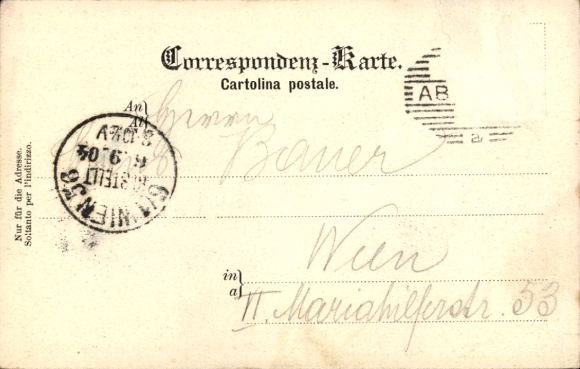 Correspondenz-Karte.
Cartolina postale.
AB
a
An
Al
Herrn
Bauer
6/1 WIEN
6. 9. 04
BESTELLT
Wien
in
a
VI. Mariahilferstr. 53
Nur für die Adresse.
Soltanto per l'indirizzo.